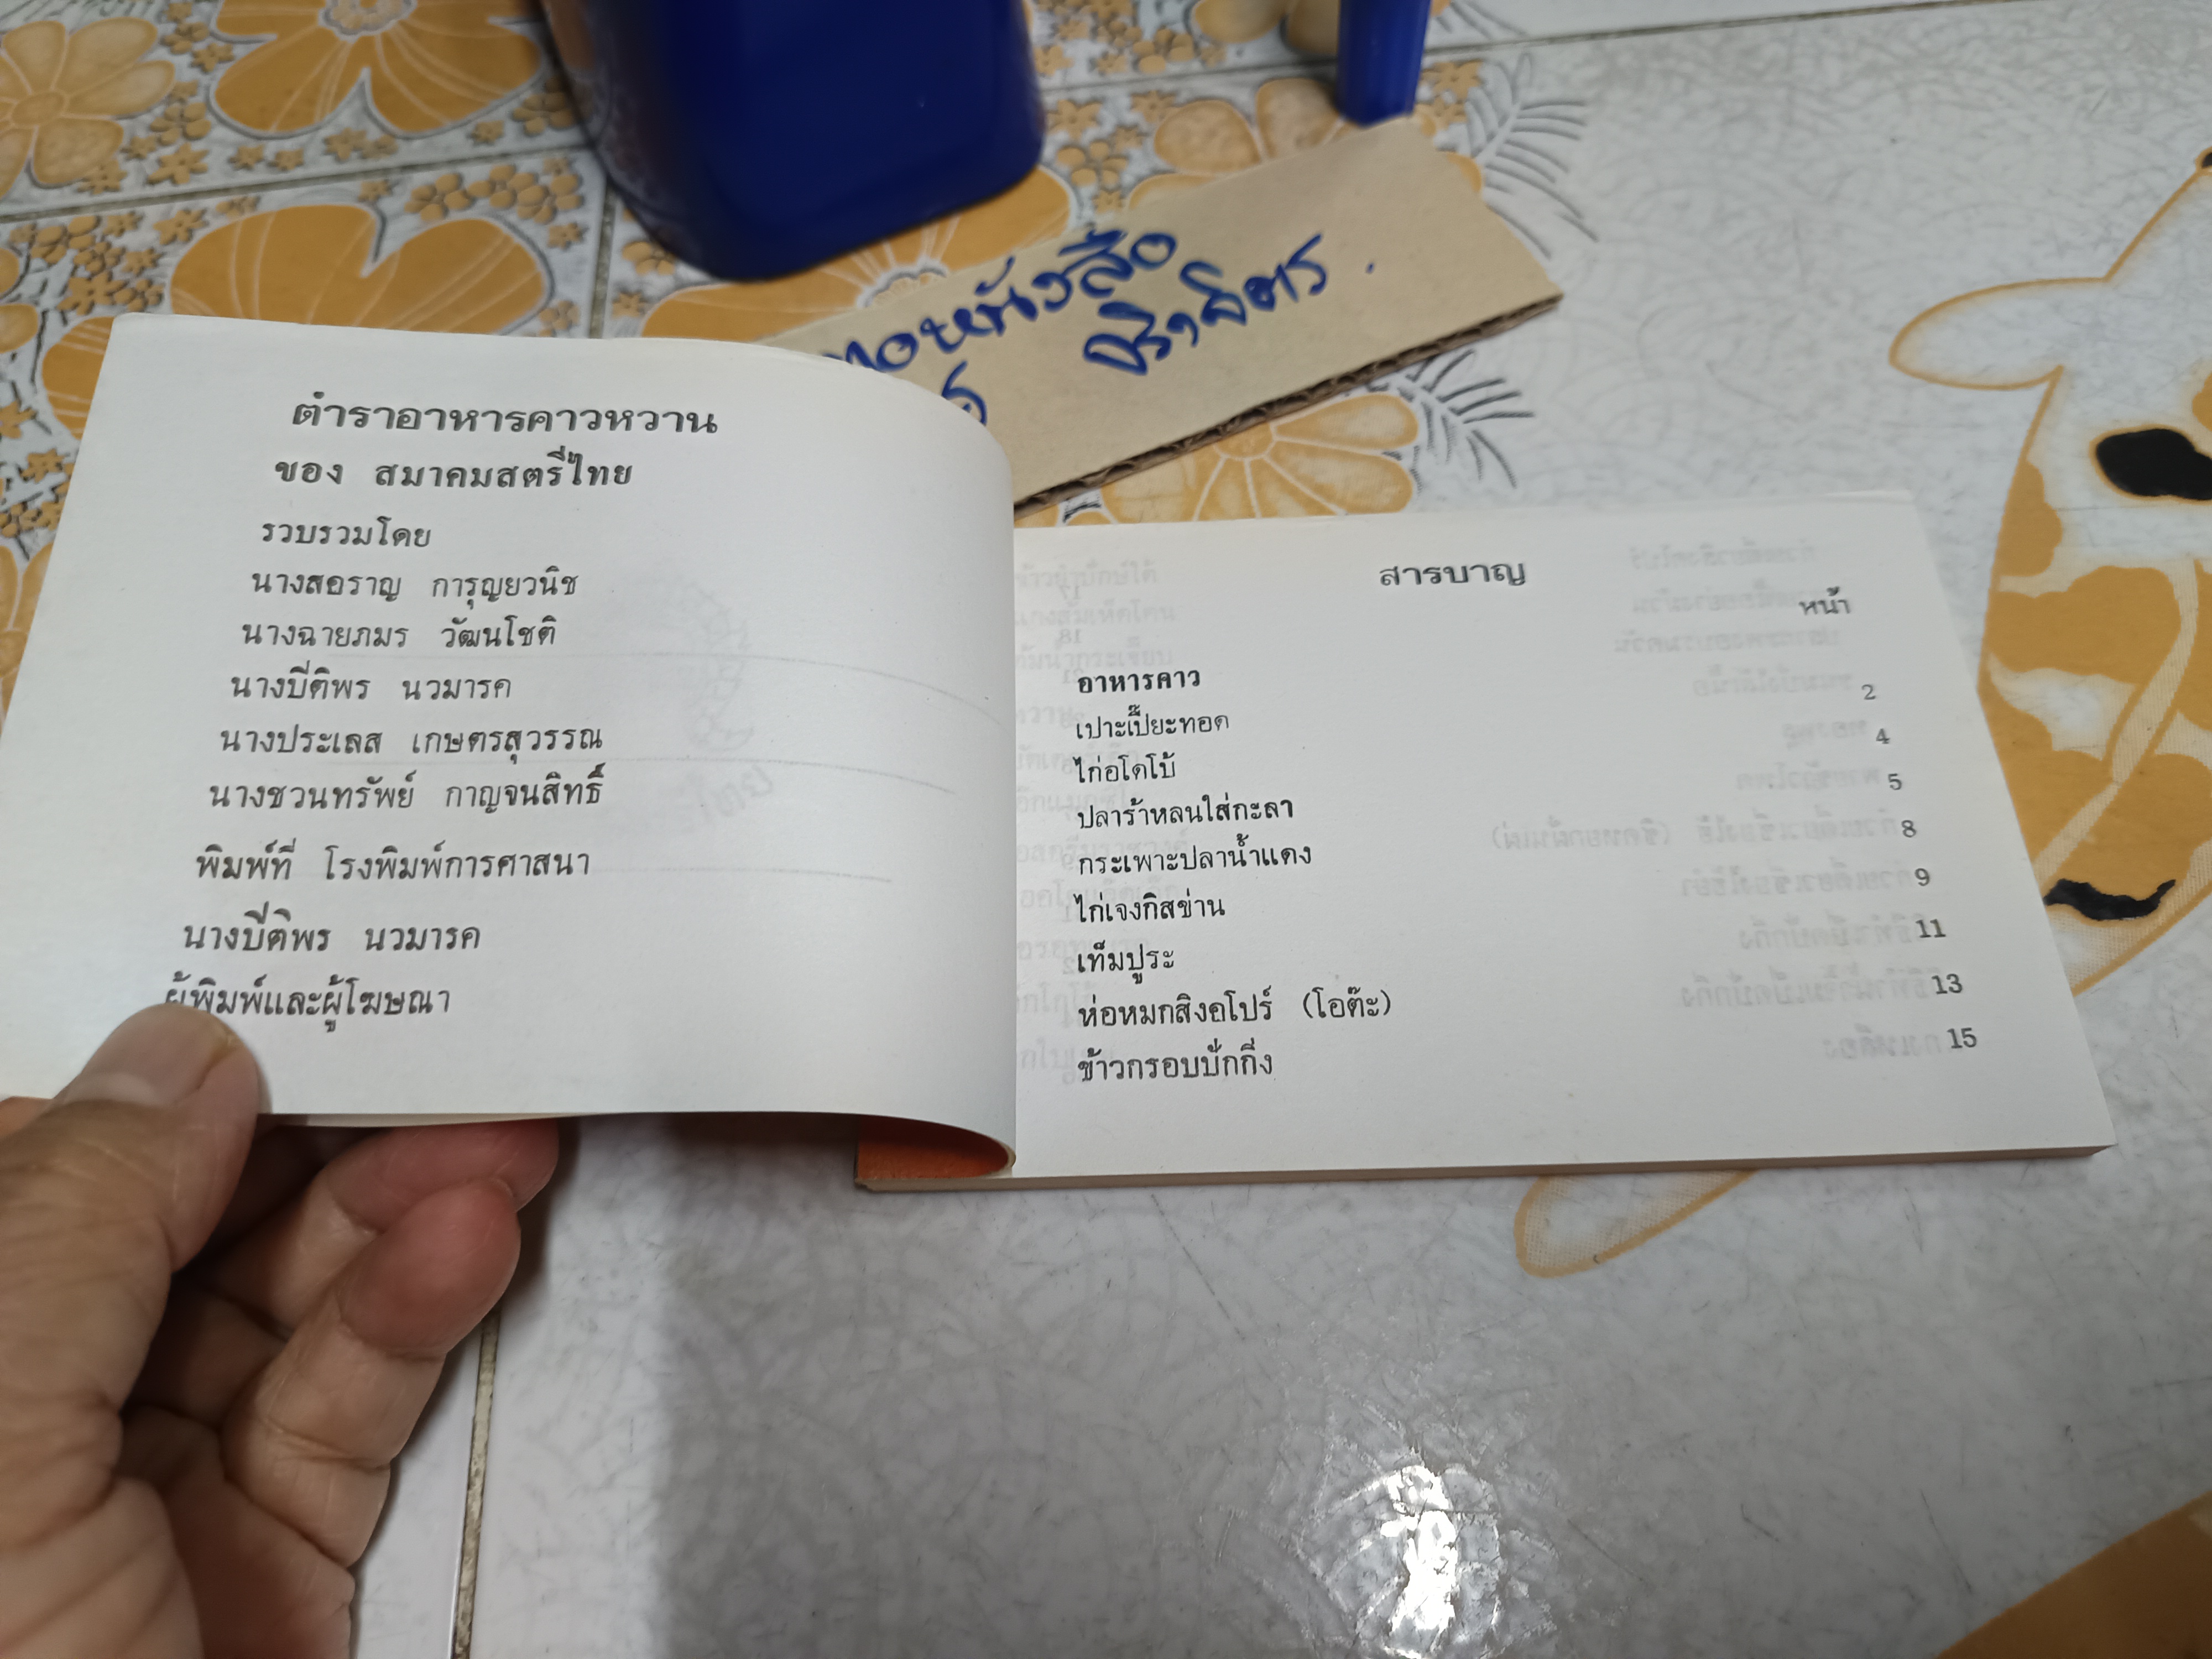 ตำราอาหารคาวหวาน
ของ สมาคมสตรีไทย
รวบรวมโดย
นางสอราญ การุญยวนิช
นางฉายภมร วัฒนโชติ
นางปีติพร นวมารค
นางประเลส เกษตรสุวรรณ
นางชวนทรัพย์ กาญจนสิทธิ์
พิมพ์ที่ โรงพิมพ์การศาสนา
นางปีติพร นวมารค
ผู้พิมพ์และผู้โฆษณา
หนังสือ
จิราจิตร.
สารบาญ
หน้า
อาหารคาว
เปาะเปี๊ยะทอด 2
ไก่อโดโบ้ 4
ปลาร้าหลนใส่กะลา 5
กระเพาะปลาน้ำแดง 8
ไก่เจงกิสข่าน 9
เท็มปูระ 11
ห่อหมกสิงคโปร์ (โอต๊ะ) 13
ข้าวกรอบปักกิ่ง 15